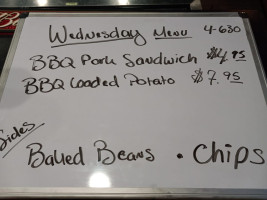 Wednesday Menu 4-630
BBQ Pork Sandwich $4.95
BBQ Loaded Potato $7.95
Sides
Baked Beans • Chips